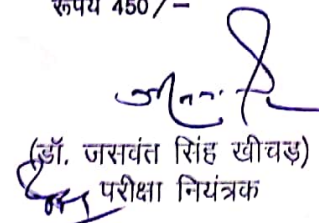 रूपये 450/-
(डॉ. जसवंत सिंह खीचड़)
परीक्षा नियंत्रक